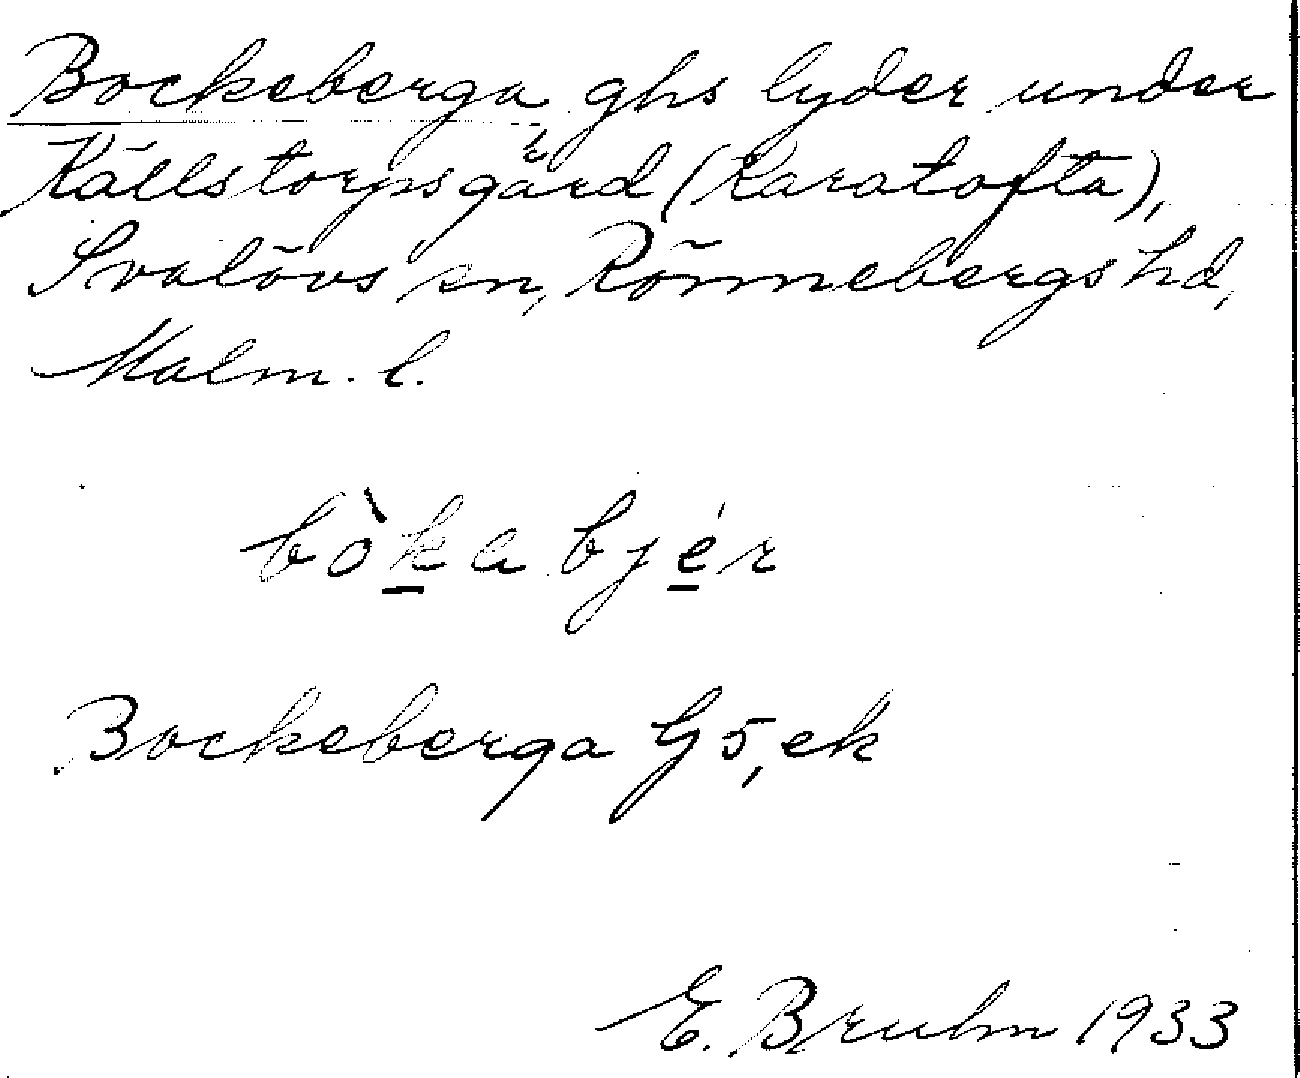 Bockeberga ghs lyder under
Källstorpsgård (Karatofta),
Svalövs sn, Rönnebergs hd,
Malm. l.
bòk̲a bjé̲r
Bockeberga G5, ek
E. Bruhn 1933